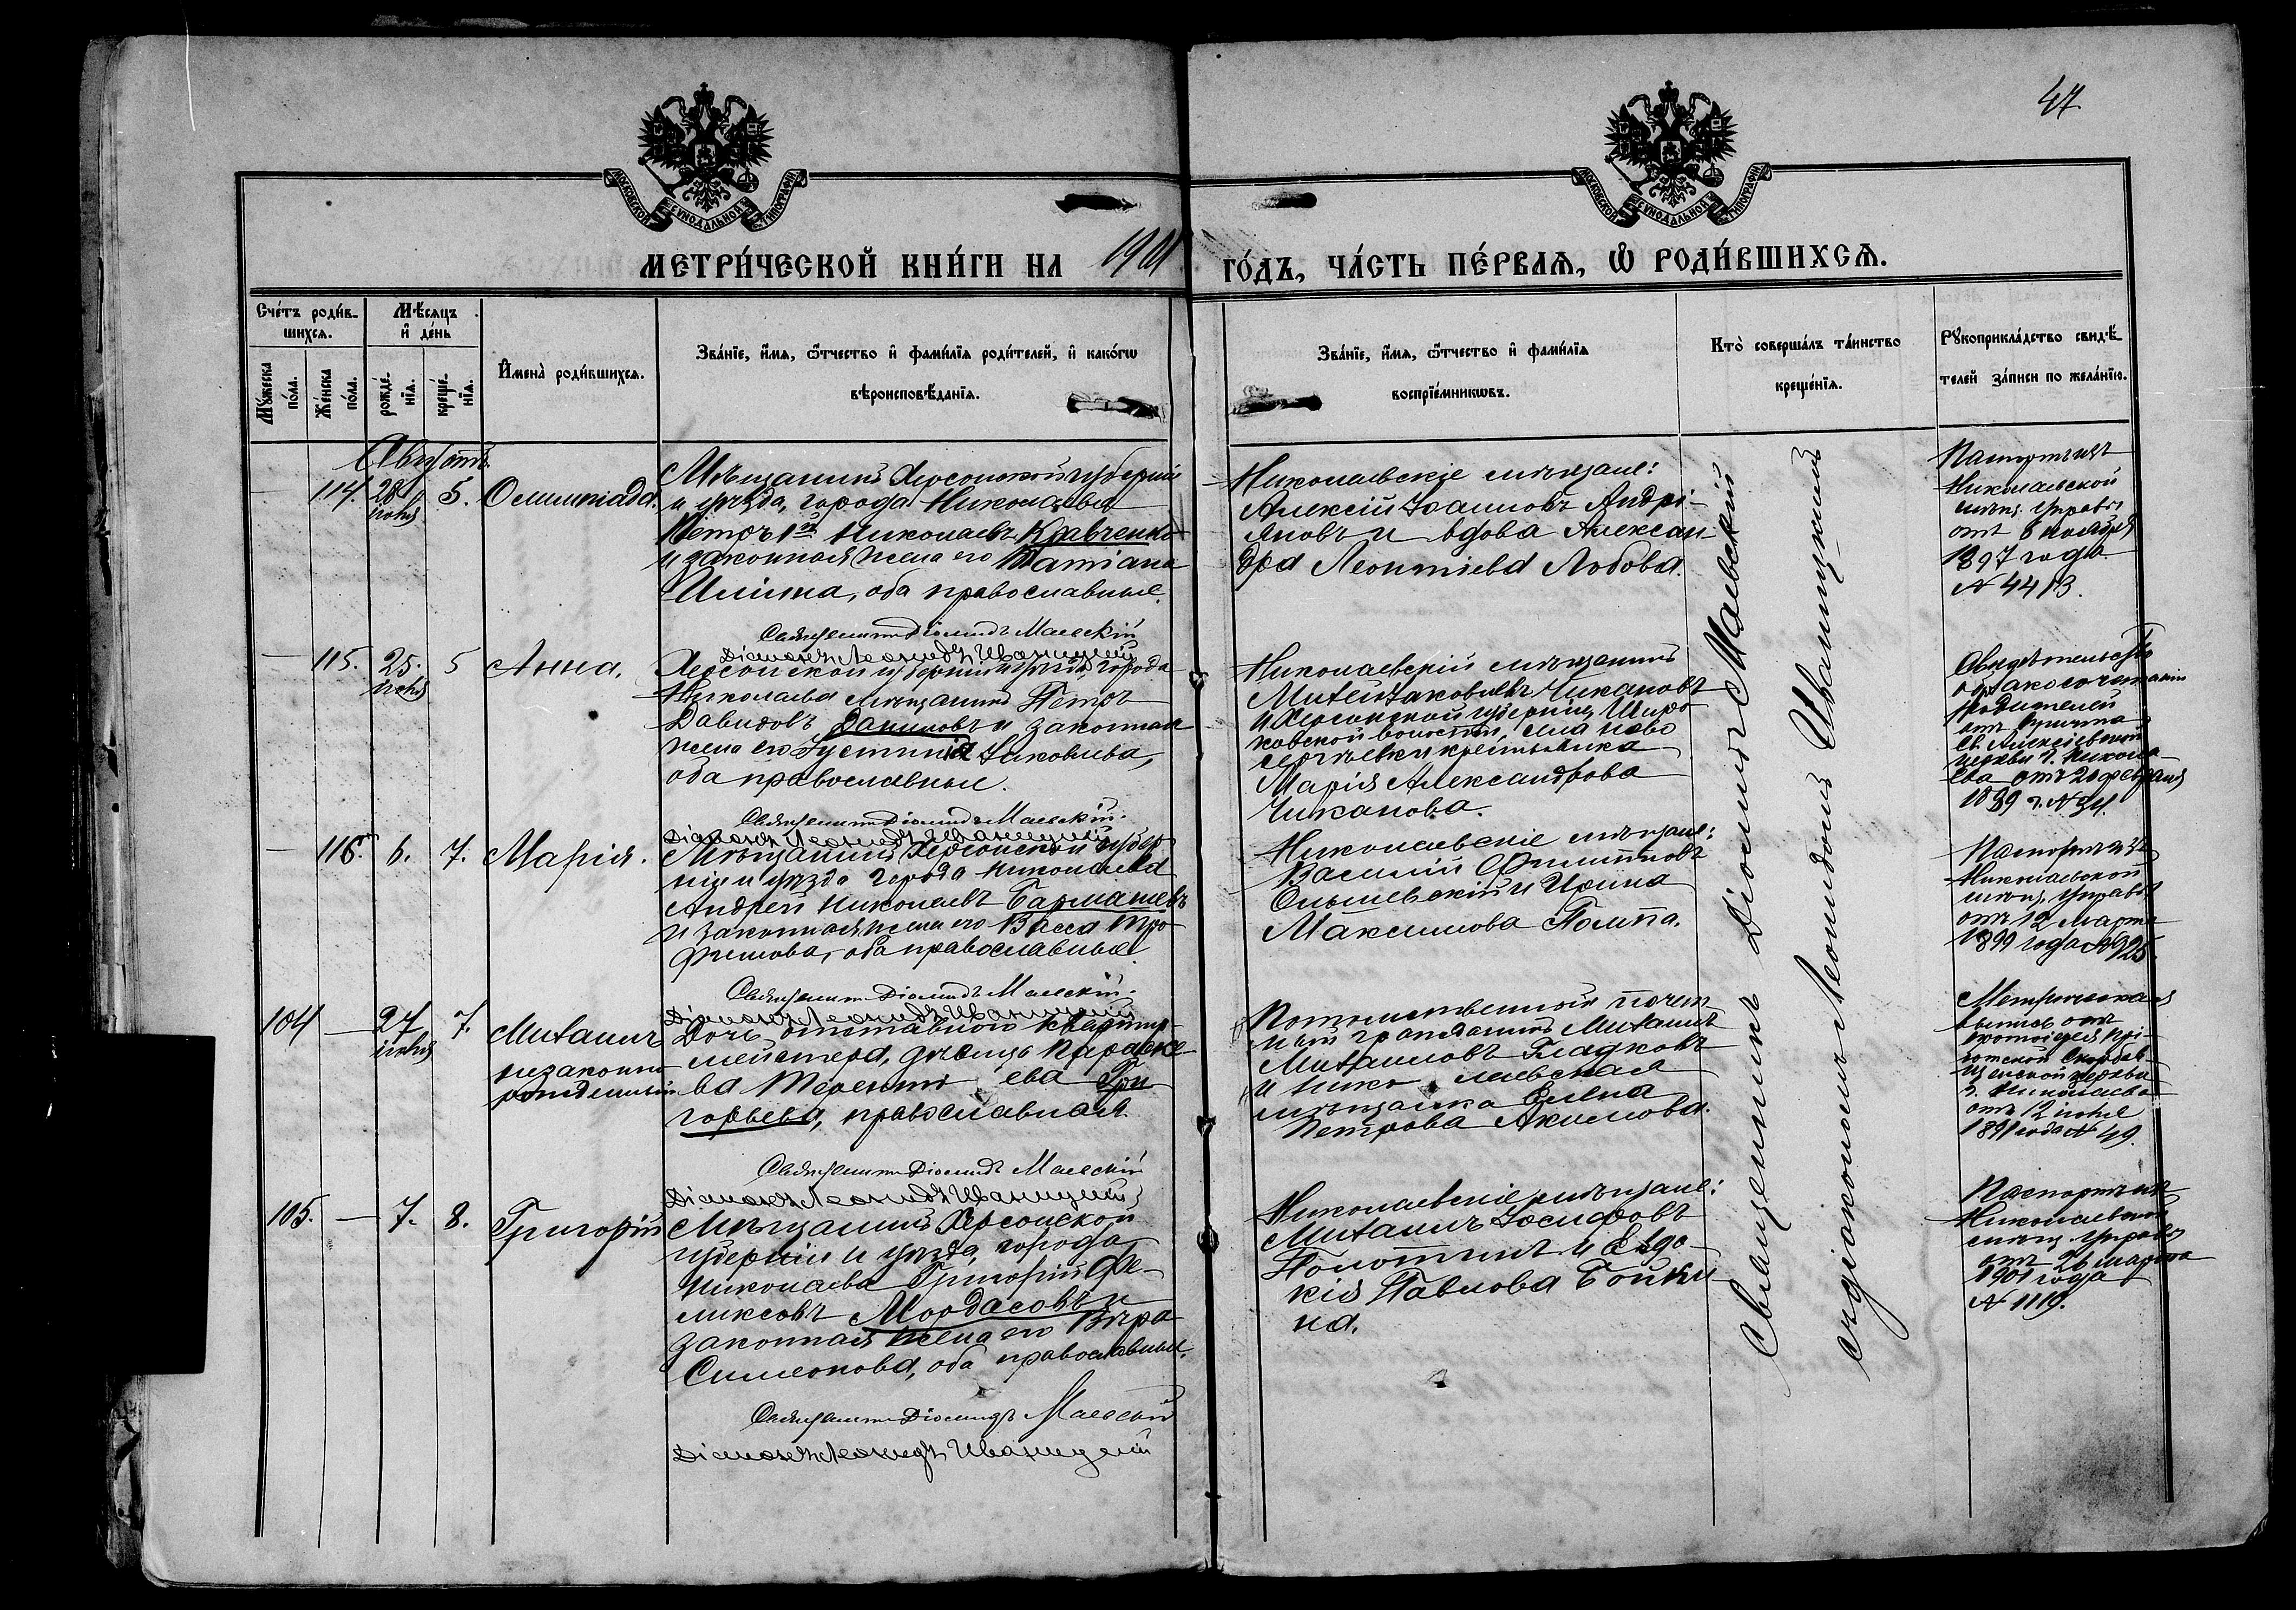 47
МОСКОВСКОЙ СѴНОДАЛЬНОЙ ТИПОГРАФІИ
МОСКОВСКОЙ СѴНОДАЛЬНОЙ ТИПОГРАФІИ
МЕТРИ́ЧЕСКОЙ КНИ́ГИ НА 1901 ГО́ДЪ, ЧА́СТЬ ПЕ́РВАѦ, Ѡ РОДИ́ВШИХСѦ.
Сче́тъ роди́в-
шихсѧ.
Мꙋжеска по́ла.
Же́нска по́ла.
Мѣ́сѧцъ
и҆ де́нь
рожде́-
нїѧ.
креще́-
нїѧ.
И҆мена̀ роди́вшихсѧ.
Зва́нїе, и҆́мѧ, ѻ҆́тчество и҆ фами́лїѧ роди́телей, и҆ како́гѡ
вѣроисповѣ́данїѧ.
Зва́нїе, и҆́мѧ, ѻ҆́тчество и҆ фами́лїѧ
воспрїе́мникѡвъ.
Кто̀ соверша́лъ та́инство
креще́нїѧ.
Рꙋкоприкла́дство свидѣ́-
телей за́писи по жела́нїю.
Августъ
114. 28 іюля 5. Олимпіада.
Мѣщанинъ Херсонской губерніи
и уѣзда, города Николаева
Петръ 1й Николаевъ Кравченко
и законная жена его Татіана
Ильина, оба православные.
Священникъ Діомидъ Маевскій
Діаконъ Леонидъ Иваницкій
Николаевскіе мѣщане:
Алексій Іоанновъ Андрі-
яновъ и вдова Алексан-
дра Леонтіева Лобова.
Паспортъ изъ
Николаевской
мѣщ. Управы
отъ 8 ноября
1897 года
№ 4413.
115. 25. іюля 5 Анна.
Херсонской губерніи и уѣзда, города
Николаева мѣщанинъ Петръ
Давидовъ Даниловъ и законная
жена его Іустинія Іаковлева,
оба православные.
Священникъ Діомидъ Маевскій.
Діаконъ Леонидъ Иваницкій
Николаевскій мѣщанинъ
Іаковлевъ Чикановъ
и Херсонской губерніи, Широ-
ковской волости, села Ново
крестьянка
Марія Александрова
Чиканова.
Свидѣтельство
о бракосочетаніи
родителей
отъ причта
Св. Алексіевской
церкви г. Никола-
ева отъ 20 февраля
1899 г. № 34.
116. 6. 7. Марія.
Мѣщанинъ Херсонской губер-
ніи и уѣзда города Николаева
Андрей Николаевъ Бармашевъ
и законная жена его Васса Тро-
фимова, оба православные.
Священникъ Діомидъ Маевскій.
Діаконъ Леонидъ Иваницкій
Николаевскіе мѣщане:
Василій Филипповъ
Ольшевскій и Ирина
Максимова
Паспортъ изъ
Николаевской
мѣщ. Управы
отъ 12 марта
1899 года № 925.
104 27 іюля 7. Михаилъ
незаконно-
рожденный
Дочь отставного квартир-
мейстера, дѣвица Параске-
ва Терентіева Гри-
горьева, православная
Священникъ Діомидъ Маевскій
Діаконъ Леонидъ Иваницкій
Потомственный почет-
ный гражданинъ Михаилъ
Михаиловъ Гладковъ
и Николаевская
мѣщанка Елена
Петрова Акимова.
Метрическая
выпись отъ
церкви
г. Николаева
отъ 12 іюля
1891 года № 49.
105. 7. 8. Григорій
Мѣщанинъ Херсонской
губерніи и уѣзда, города
Николаева Григорій Фе-
ликсовъ Мордасовъ и
законная жена его Вѣра
Симеонова, оба православные.
Священникъ Діомидъ Маевскій
Діаконъ Леонидъ Иваницкій
Николаевскіе мѣщане:
Михаилъ Іосифовъ
и Евдо-
кія Павлова Бойки-
на.
Паспортъ изъ
Николаевской
мѣщ. Управы
отъ 26 марта
1901 года
№ 1119.
Священникъ Діомидъ Маевскій
съ діакономъ Леонидомъ Иваницкимъ